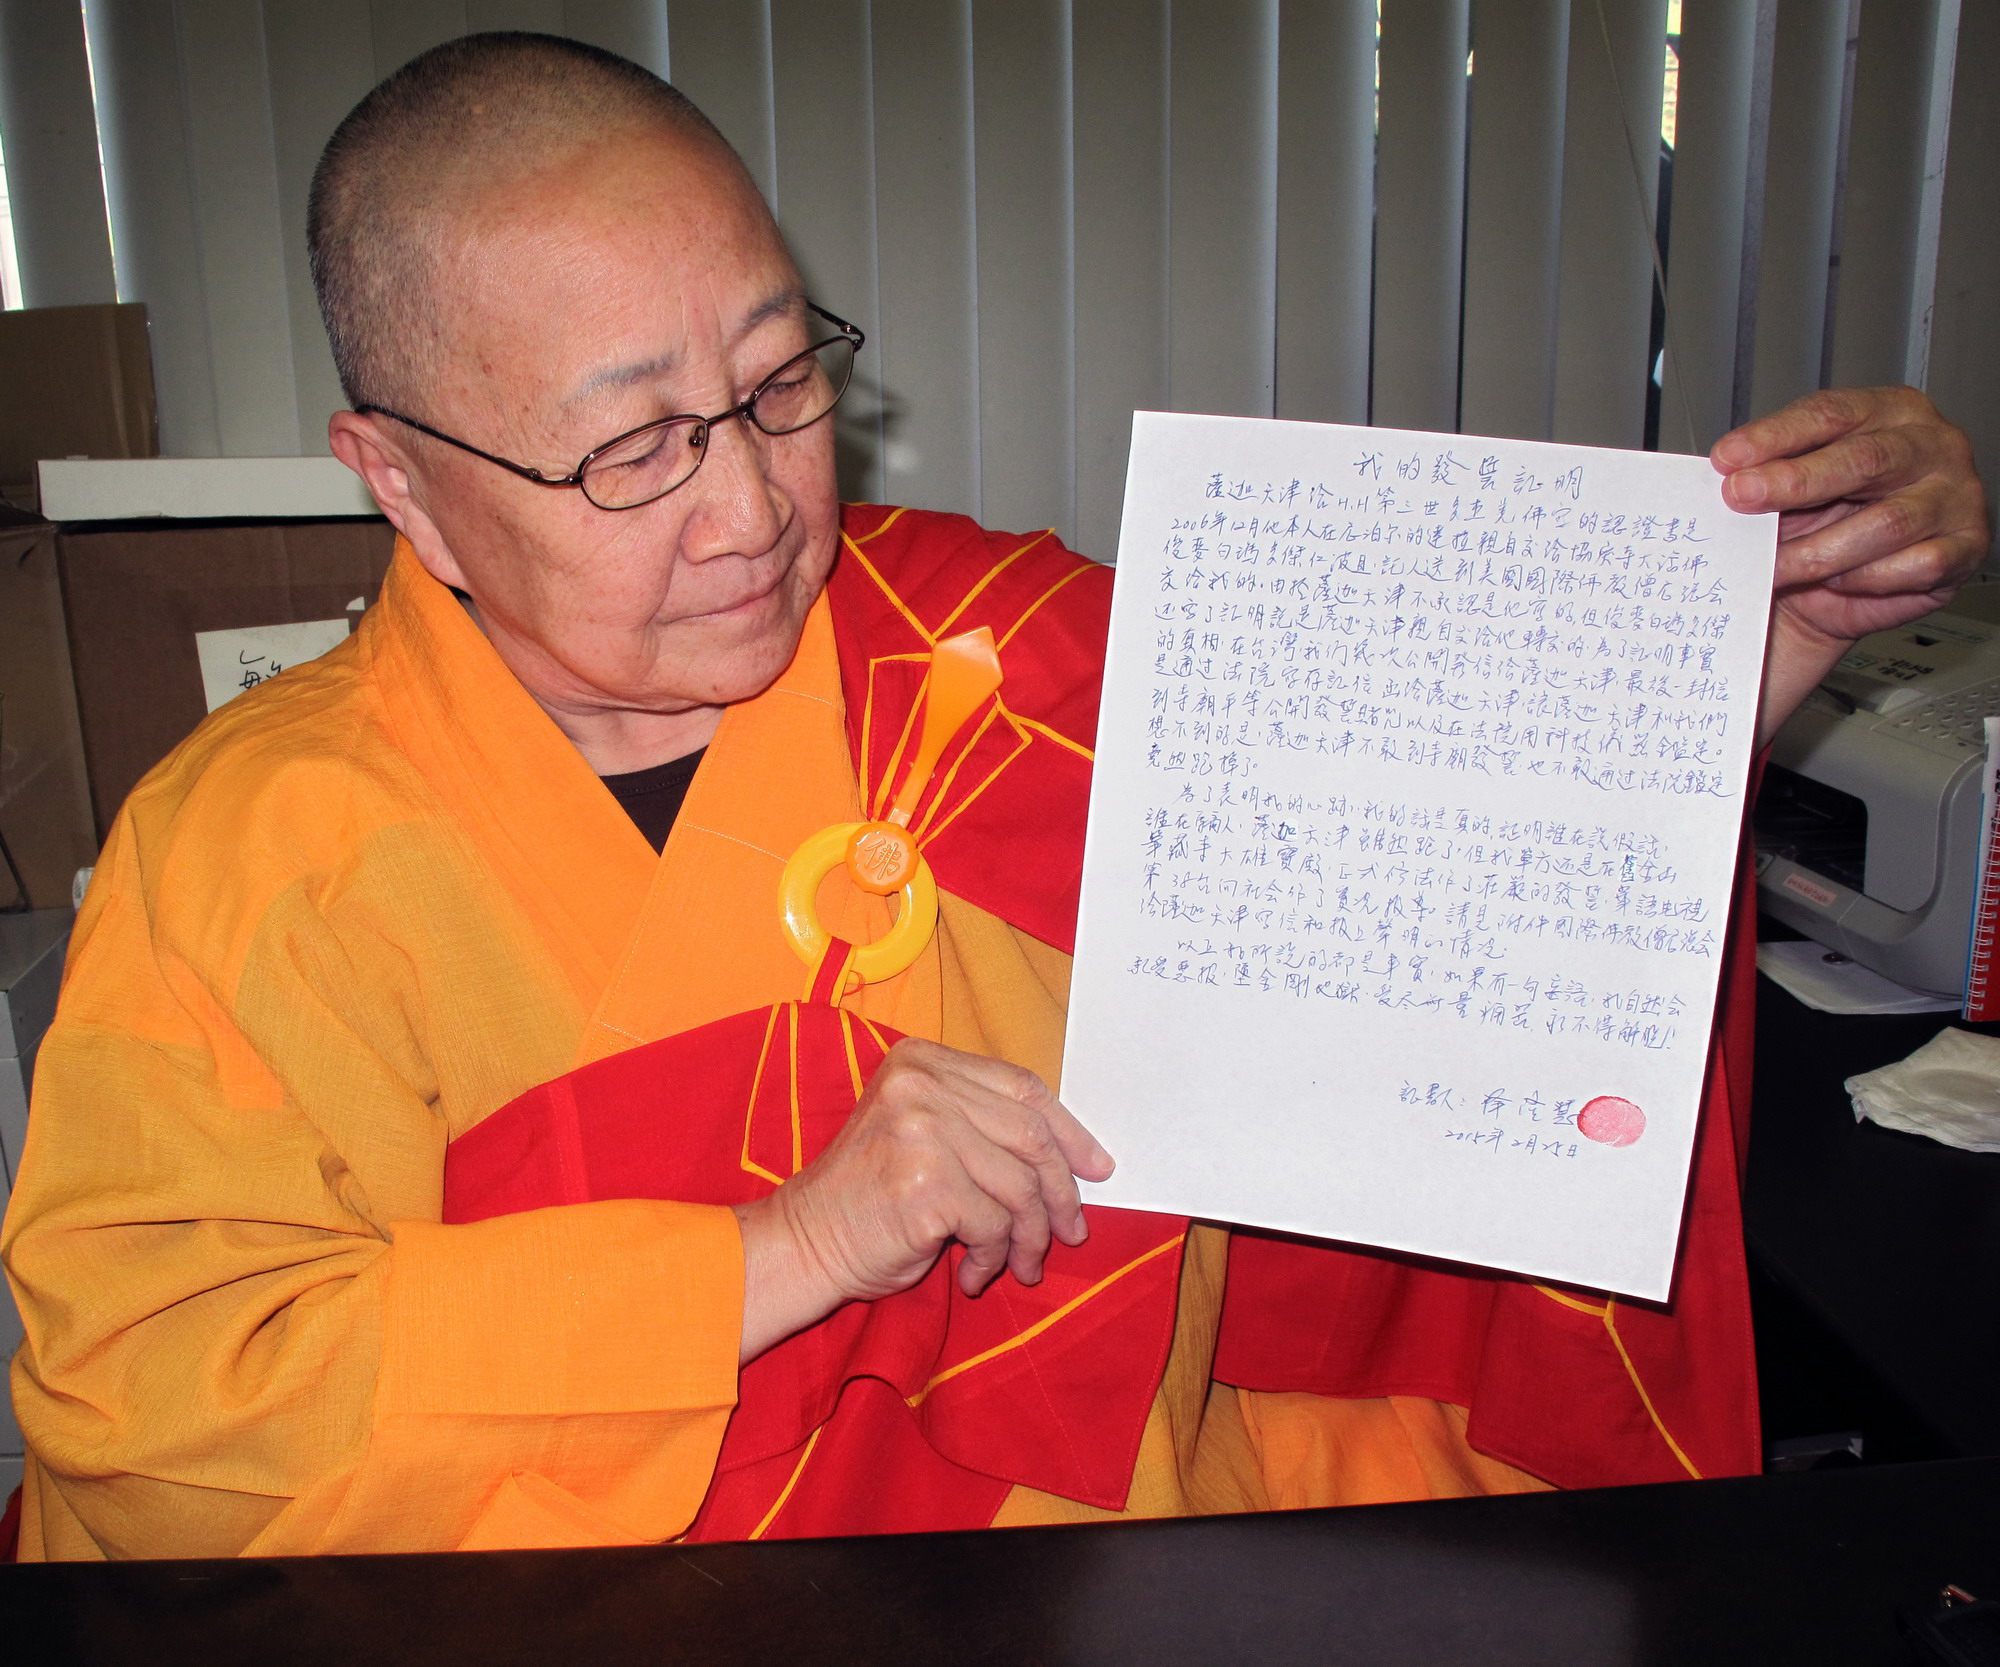 我的發誓証明
薩迦天津给H.H第三世多杰羌佛寫的認證書是
2006年12月他本人在尼泊尔的達拉親自交洽協庆寺大活佛
俊麥白瑪多傑仁波且,託人送到美國國際佛教僧尼總会
交给我的。由於薩迦天津不承認是他寫的,但俊麥白瑪多傑
还写了証明説是薩迦天津親自交给他轉交的。為了証明事實
的真相,在台灣,我们幾次公開發信给薩迦天津,最後一封信
是通过法院寄存証信函给薩迦天津,讓薩迦天津和我們
到寺廟平等公開發誓賭咒以及在法院用科技儀器鑑定。
想不到的是,薩迦天津不敢到寺廟發誓也不敢通过法院鑑定
竟然跑掉了。
為了表明我的心跡,我的話是真的,証明誰在説假話,
誰在騙人,薩迦天津雖然跑了,但我單方还是在舊金山
華藏寺大雄寶殿,正式修法作了莊嚴的發誓,華語电視
第38台向社会作了實况报導。請見附件國際佛教僧尼總会
给薩迦天津写信和报上聲明的情况。
以上我所説的都是事實,如果有一句妄語,我自然会
承受恶报,墮金剛地獄,受尽無量痛苦,永不得解脱!
証明人:释隆慧
2015年2月25日
佛
每